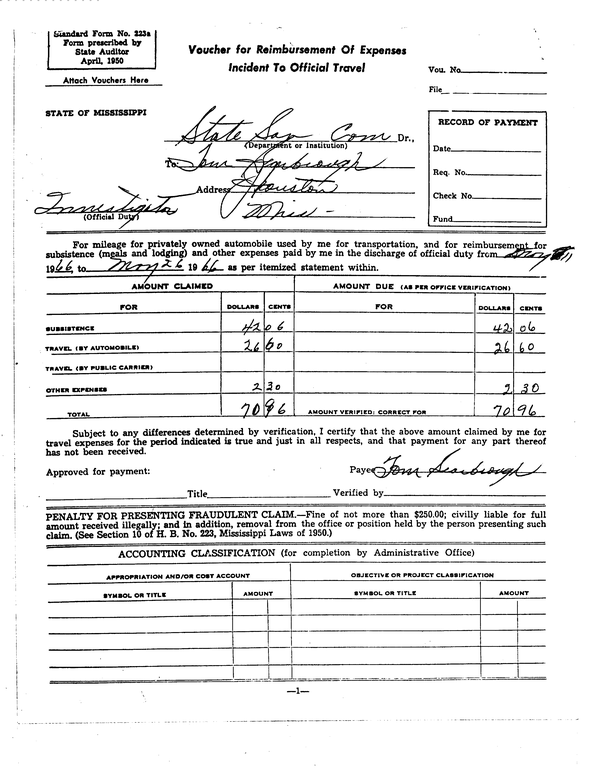 Standard Form No. 223a
Form prescribed by
State Auditor
April, 1950
Attach Vouchers Here
Voucher for Reimbursement Of Expenses
Incident To Official Travel
Vou. No.
File
STATE OF MISSISSIPPI
RECORD OF PAYMENT
Date
Req. No.
Check No.
Fund
State Sov Com Dr.,
(Department or Institution)
To: Tom Scarbrough
Address Houston
Miss -
Investigator
(Official Duty)
For mileage for privately owned automobile used by me for transportation, and for reimbursement for
subsistence (meals and lodging) and other expenses paid by me in the discharge of official duty from May
1966, to May 26 1966 as per itemized statement within.
AMOUNT CLAIMED AMOUNT DUE (AS PER OFFICE VERIFICATION)
FOR DOLLARS CENTS FOR DOLLARS CENTS
SUBSISTENCE 42 06 42 06
TRAVEL (BY AUTOMOBILE) 26 60 26 60
TRAVEL (BY PUBLIC CARRIER)
OTHER EXPENSES 2 30 2 30
TOTAL 70 96 AMOUNT VERIFIED: CORRECT FOR 70 96
Subject to any differences determined by verification, I certify that the above amount claimed by me for
travel expenses for the period indicated is true and just in all respects, and that payment for any part thereof
has not been received.
Approved for payment: Payee Tom Scarbrough
Title Verified by
PENALTY FOR PRESENTING FRAUDULENT CLAIM.—Fine of not more than $250.00; civilly liable for full
amount received illegally; and in addition, removal from the office or position held by the person presenting such
claim. (See Section 10 of H. B. No. 223, Mississippi Laws of 1950.)
ACCOUNTING CLASSIFICATION (for completion by Administrative Office)
APPROPRIATION AND/OR COST ACCOUNT OBJECTIVE OR PROJECT CLASSIFICATION
SYMBOL OR TITLE AMOUNT SYMBOL OR TITLE AMOUNT
—1—